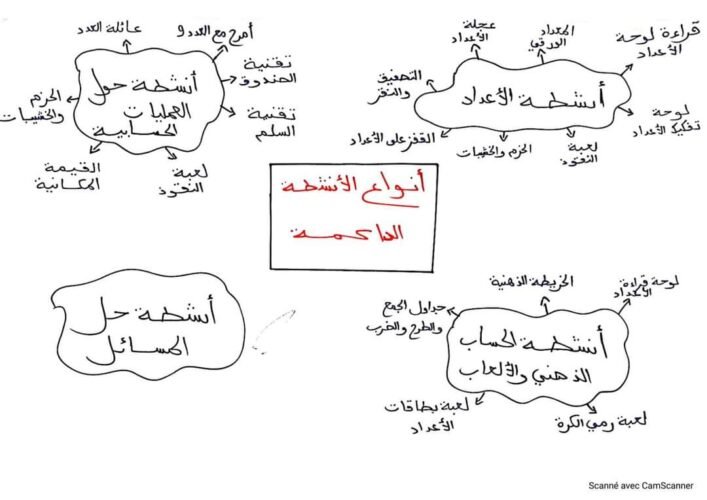 أنواع الأنشطة
الداعمة
أنشطة الأعداد
قراءة لوحة
الأعداد
المعداد
الورقي
عجلة
الأعداد
التصفيق
والنقر
القفز على الأعداد
الحزم والخشيبات
لعبة
النقود
لوحة
تفكيك الأعداد
أنشطة حول
العمليات
الحسابية
أمرح مع العدد 9
عائلة العدد
تقنية
الصندوق
تقنية
السلم
لعبة
النقود
القيمة
المكانية
الحزم
والخشيبات
أنشطة الحساب
الذهني والألعاب
لوحة قراءة
الأعداد
الخريطة الذهنية
جداول الجمع
والطرح والضرب
لعبة بطاقات
الأعداد
لعبة رمي الكرة
أنشطة حل
المسائل
Scanné avec CamScanner